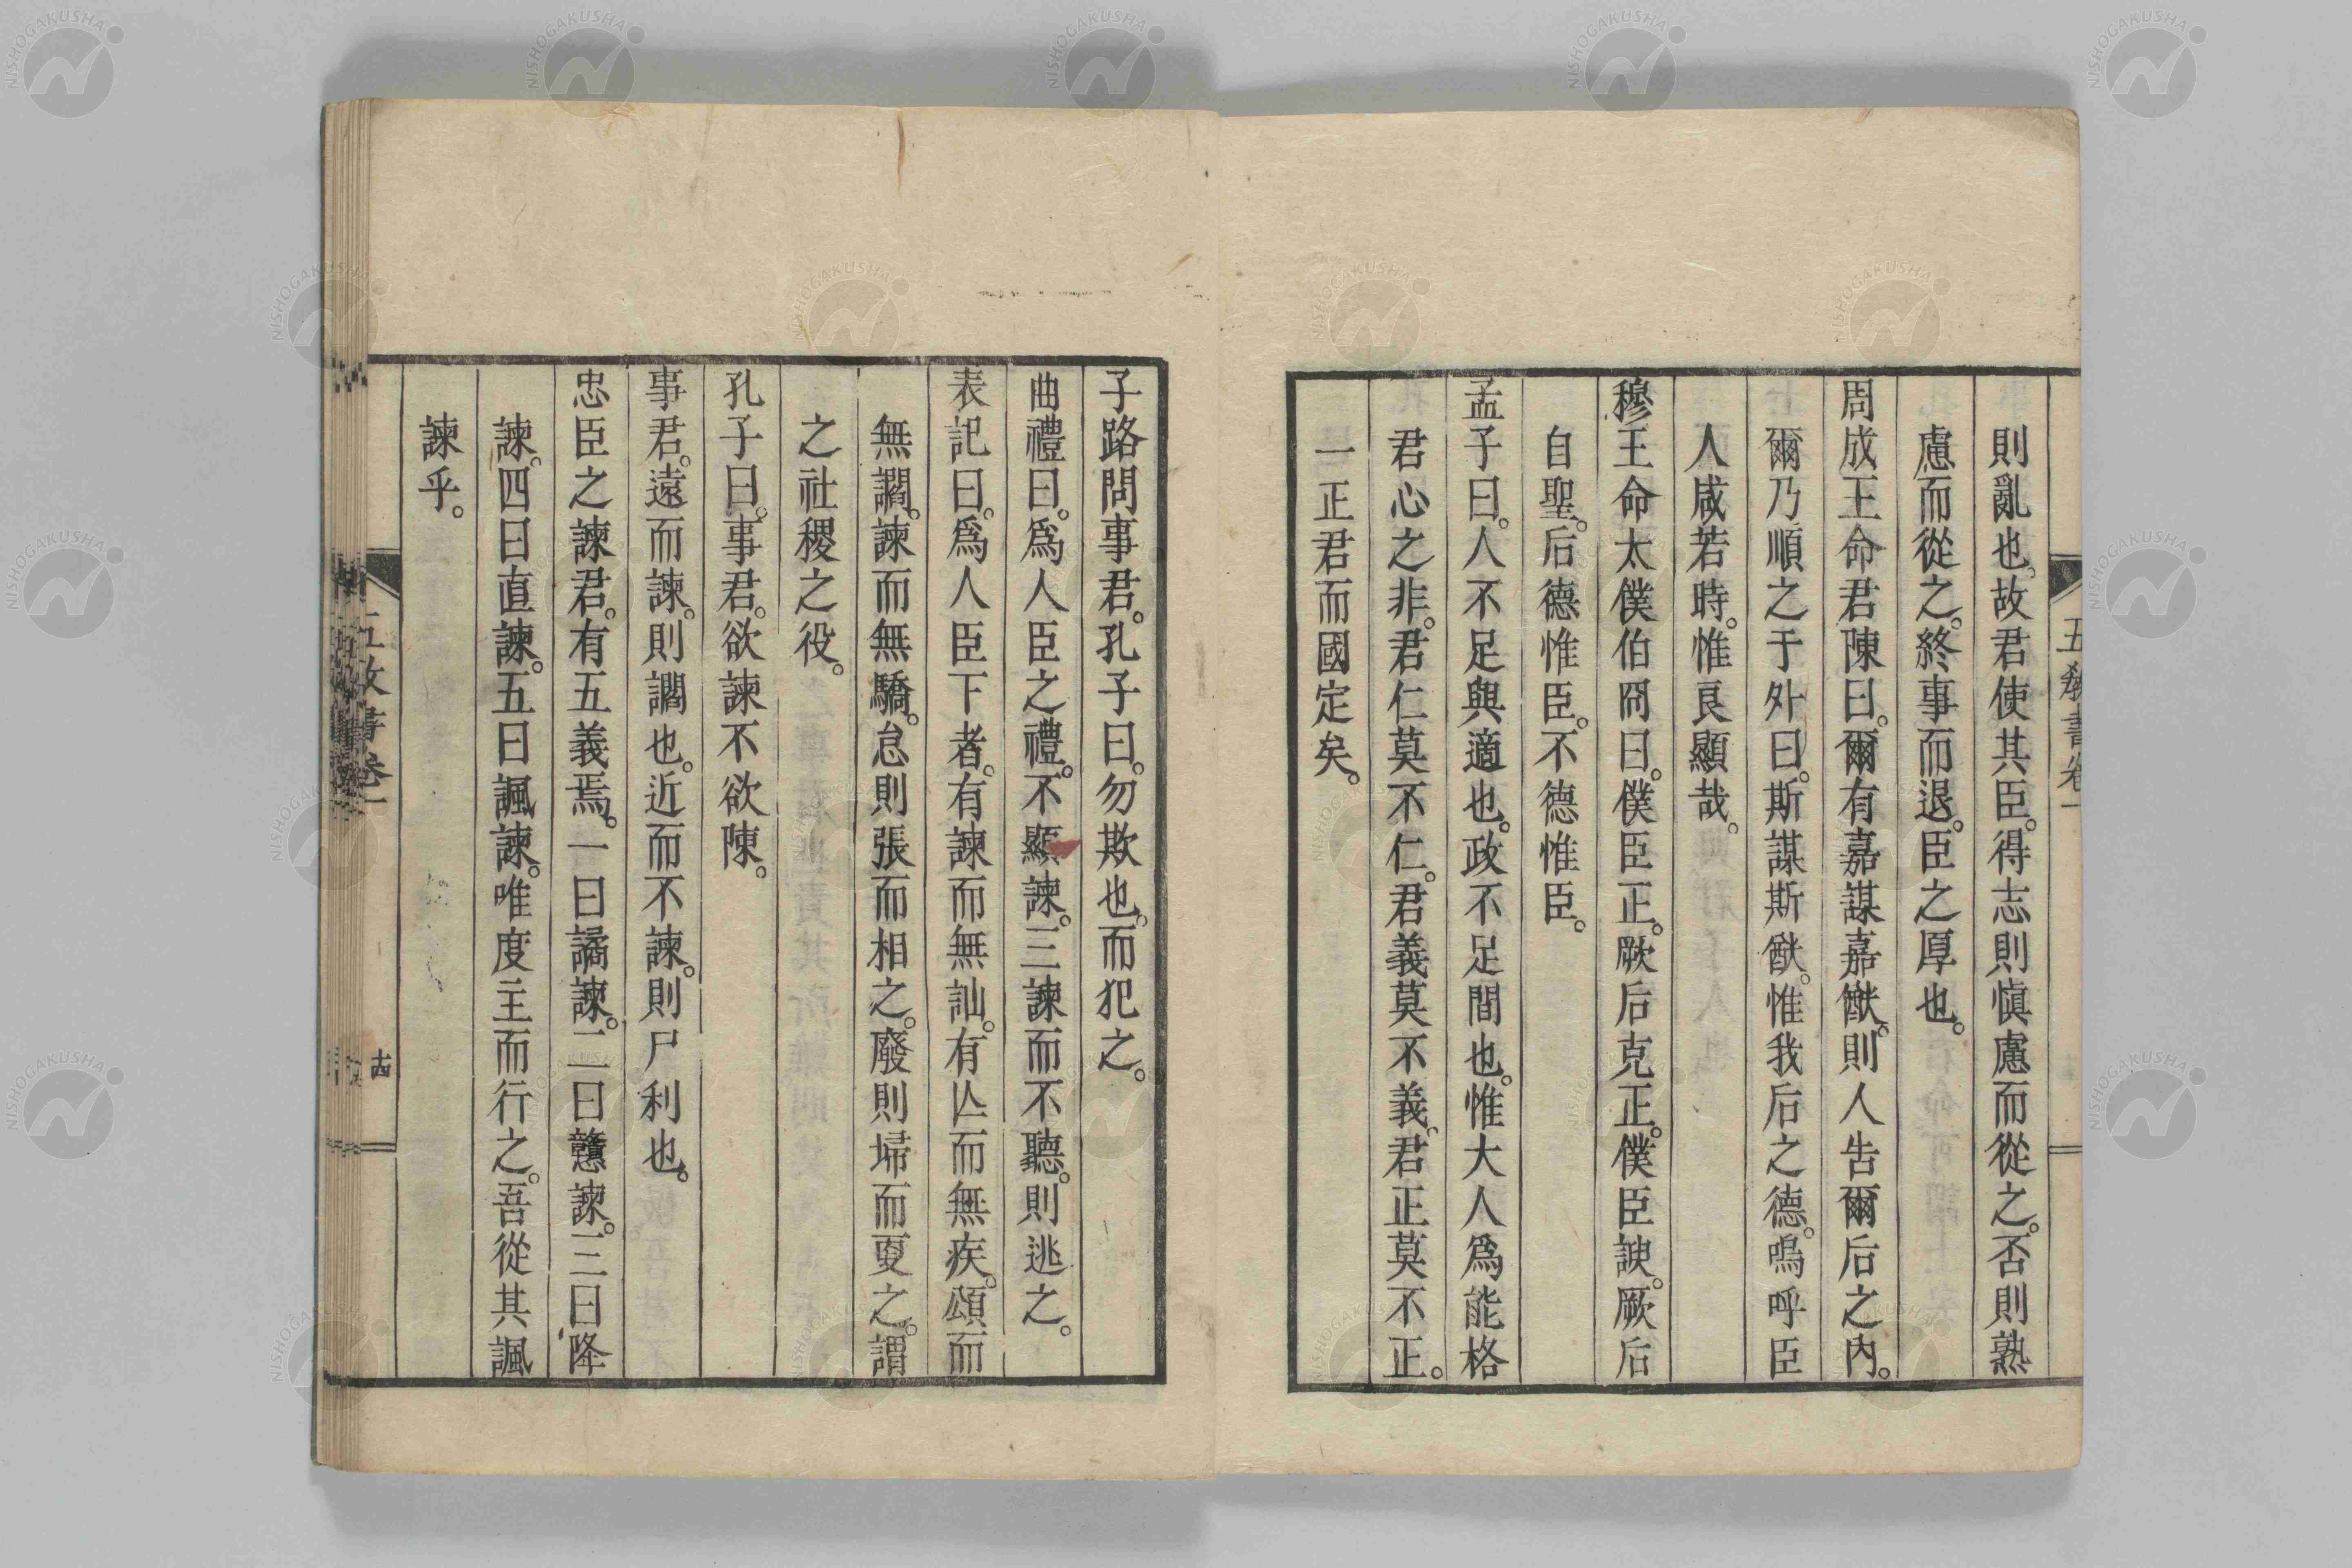 五教書卷一
則亂也。故君使其臣。得志則愼慮而從之。否則熟
慮而從之。終事而退。臣之厚也。
周成王命君陳曰。爾有嘉謀嘉猷。則入告爾后之內。
爾乃順之于外曰。斯謀斯猷。惟我后之德。嗚呼臣
人咸若時。惟良顯哉。
穆王命太僕伯冏曰。僕臣正。厥后克正。僕臣諛。厥后
自聖。后德惟臣。不德惟臣。
孟子曰。人不足與適也。政不足間也。惟大人爲能格
君心之非。君仁莫不仁。君義莫不義。君正莫不正。
一正君而國定矣。
子路問事君。孔子曰。勿欺也。而犯之。
曲禮曰。爲人臣之禮。不顯諫。三諫而不聽。則逃之。
表記曰。爲人臣下者。有諫而無訕。有亾而無疾。頌而
無讇。諫而無驕。怠則張而相之。廢則埽而更之。謂
之社稷之役。
孔子曰。事君。欲諫不欲陳。
事君。遠而諫。則讇也。近而不諫。則尸利也。
忠臣之諫君。有五義焉。一曰譎諫。二曰戇諫。三曰降
諫。四曰直諫。五曰諷諫。唯度主而行之。吾從其諷
諫乎。
五教書卷一
十四